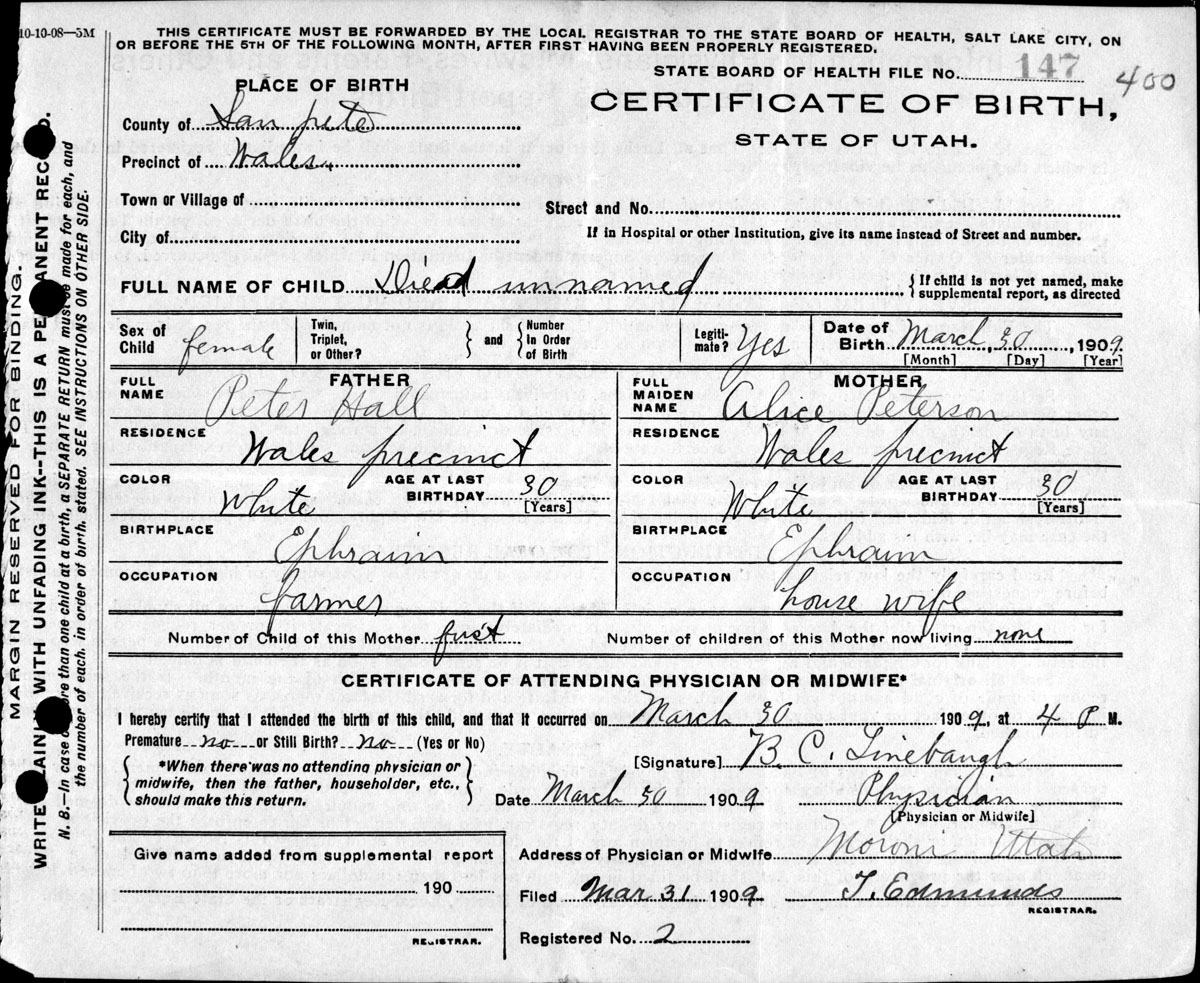 10-10-08—5M
THIS CERTIFICATE MUST BE FORWARDED BY THE LOCAL REGISTRAR TO THE STATE BOARD OF HEALTH, SALT LAKE CITY, ON
OR BEFORE THE 5TH OF THE FOLLOWING MONTH, AFTER FIRST HAVING BEEN PROPERLY REGISTERED.
STATE BOARD OF HEALTH FILE No. 147 400
PLACE OF BIRTH
CERTIFICATE OF BIRTH,
STATE OF UTAH.
County of San pete
Precinct of Wales
Town or Village of
Street and No.
City of
If in Hospital or other Institution, give its name instead of Street and number.
FULL NAME OF CHILD Died unnamed { If child is not yet named, make supplemental report, as directed
Sex of Child female Twin, Triplet, or Other? } and { Number In Order of Birth Legiti-mate? Yes Date of Birth March 30, 1909.
[Month] [Day] [Year]
FATHER
FULL NAME Peter Hall
RESIDENCE Wales precinct
COLOR White AGE AT LAST BIRTHDAY 30 [Years]
BIRTHPLACE Ephraim
OCCUPATION farmer
MOTHER
FULL MAIDEN NAME Alice Peterson
RESIDENCE Wales precinct
COLOR White AGE AT LAST BIRTHDAY 30 [Years]
BIRTHPLACE Ephraim
OCCUPATION house wife
Number of Child of this Mother first Number of children of this Mother now living none
CERTIFICATE OF ATTENDING PHYSICIAN OR MIDWIFE*
I hereby certify that I attended the birth of this child, and that it occurred on March 30 1909, at 4 P M.
Premature no or Still Birth? no (Yes or No)
{ *When there was no attending physician or
midwife, then the father, householder, etc.,
should make this return. }
[Signature] B. C. Linebaugh
Date March 30 1909 Physician
[Physician or Midwife]
Give name added from supplemental report
190
REGISTRAR.
Address of Physician or Midwife Moroni Utah
Filed Mar. 31 1909 T. Edmunds
REGISTRAR.
Registered No. 2
MARGIN RESERVED FOR BINDING.
WRITE PLAINLY WITH UNFADING INK--THIS IS A PERMANENT RECORD.
N. B.—In case of more than one child at a birth, a SEPARATE RETURN must be made for each, and
the number of each, in order of birth, stated. SEE INSTRUCTIONS ON OTHER SIDE.